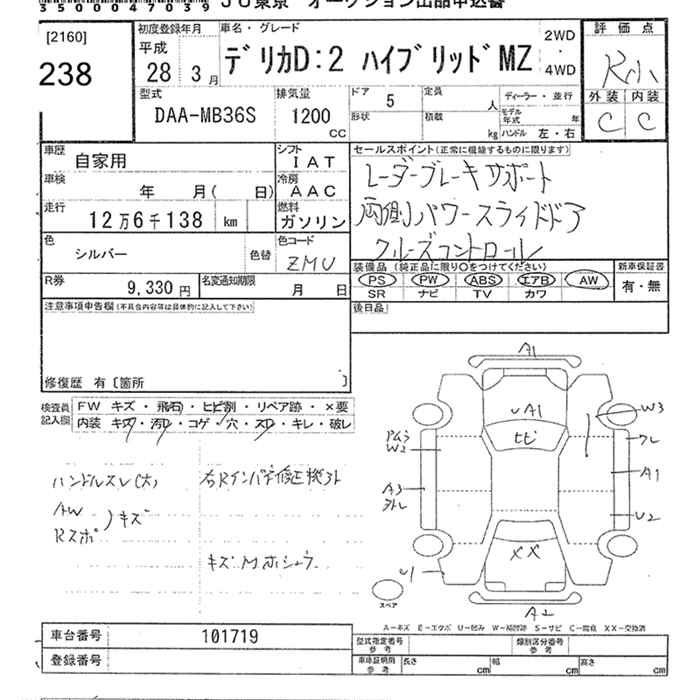 350004 7039 JU東京 オークション出品申込書
[2160]
238
初度登録年月
平成
28 3月
車名・グレード
デリカD:2 ハイブリッドMZ
2WD
・
4WD
評価点
R
外装 内装
C C
型式
DAA-MB36S
排気量
1200
CC
ドア 5
形状
定員 人
積載 kg
ディーラー・並行
モデル年式 年
ハンドル 左・右
車歴 自家用
シフト IAT
車検 年 月( 日)
冷房 AAC
走行 12万6千138 km
燃料 ガソリン
色 シルバー 色替
色コード ZMU
R券 9,330円
名変通知期限 月 日
セールスポイント(正常に機能するものに限ります)
レーダーブレーキサポート
両側パワースライドドア
クルーズコントロール
装備品(純正品に限り○をつけてください)
PS PW ABS エアB AW
SR ナビ TV カワ
新車保証書
有・無
後日品
注意事項申告欄(不具合内容等は具体的に記入して下さい)
修復歴 有〔箇所 〕
検査員記入欄
FW キズ・飛石・ヒビ割・リペア跡・×要
内装 キズ・汚レ・コゲ・穴・スレ・キレ・破レ
ハンドルスレ(大)
AW
Rスポ )キズ
右Rインパネ修正機外
キズMホシュウ
A1
UA1
ヒビ
W3
クレ
A1
U2
W2
A3
ハズレ
XX
U1
A2
スペア
A-キズ E-エクボ U-凹み W-補修跡 S-サビ C-腐食 XX-交換済
車台番号 101719
登録番号
型式指定番号 参考
類別区分番号 参考
車庫証明用 参考
長さ cm 幅 cm 高さ cm